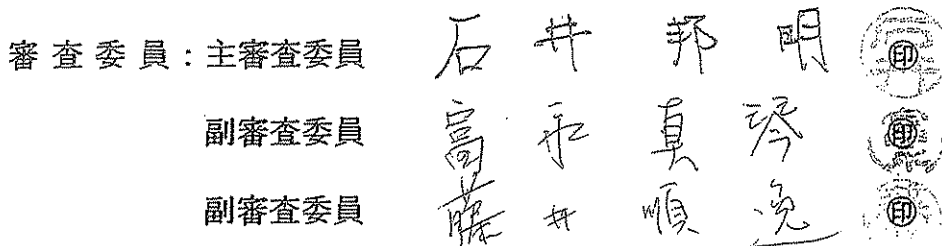 審査委員：主審査委員 石井邦明 ㊞
副審査委員 富永真琴 ㊞
副審査委員 藤井順逸 ㊞